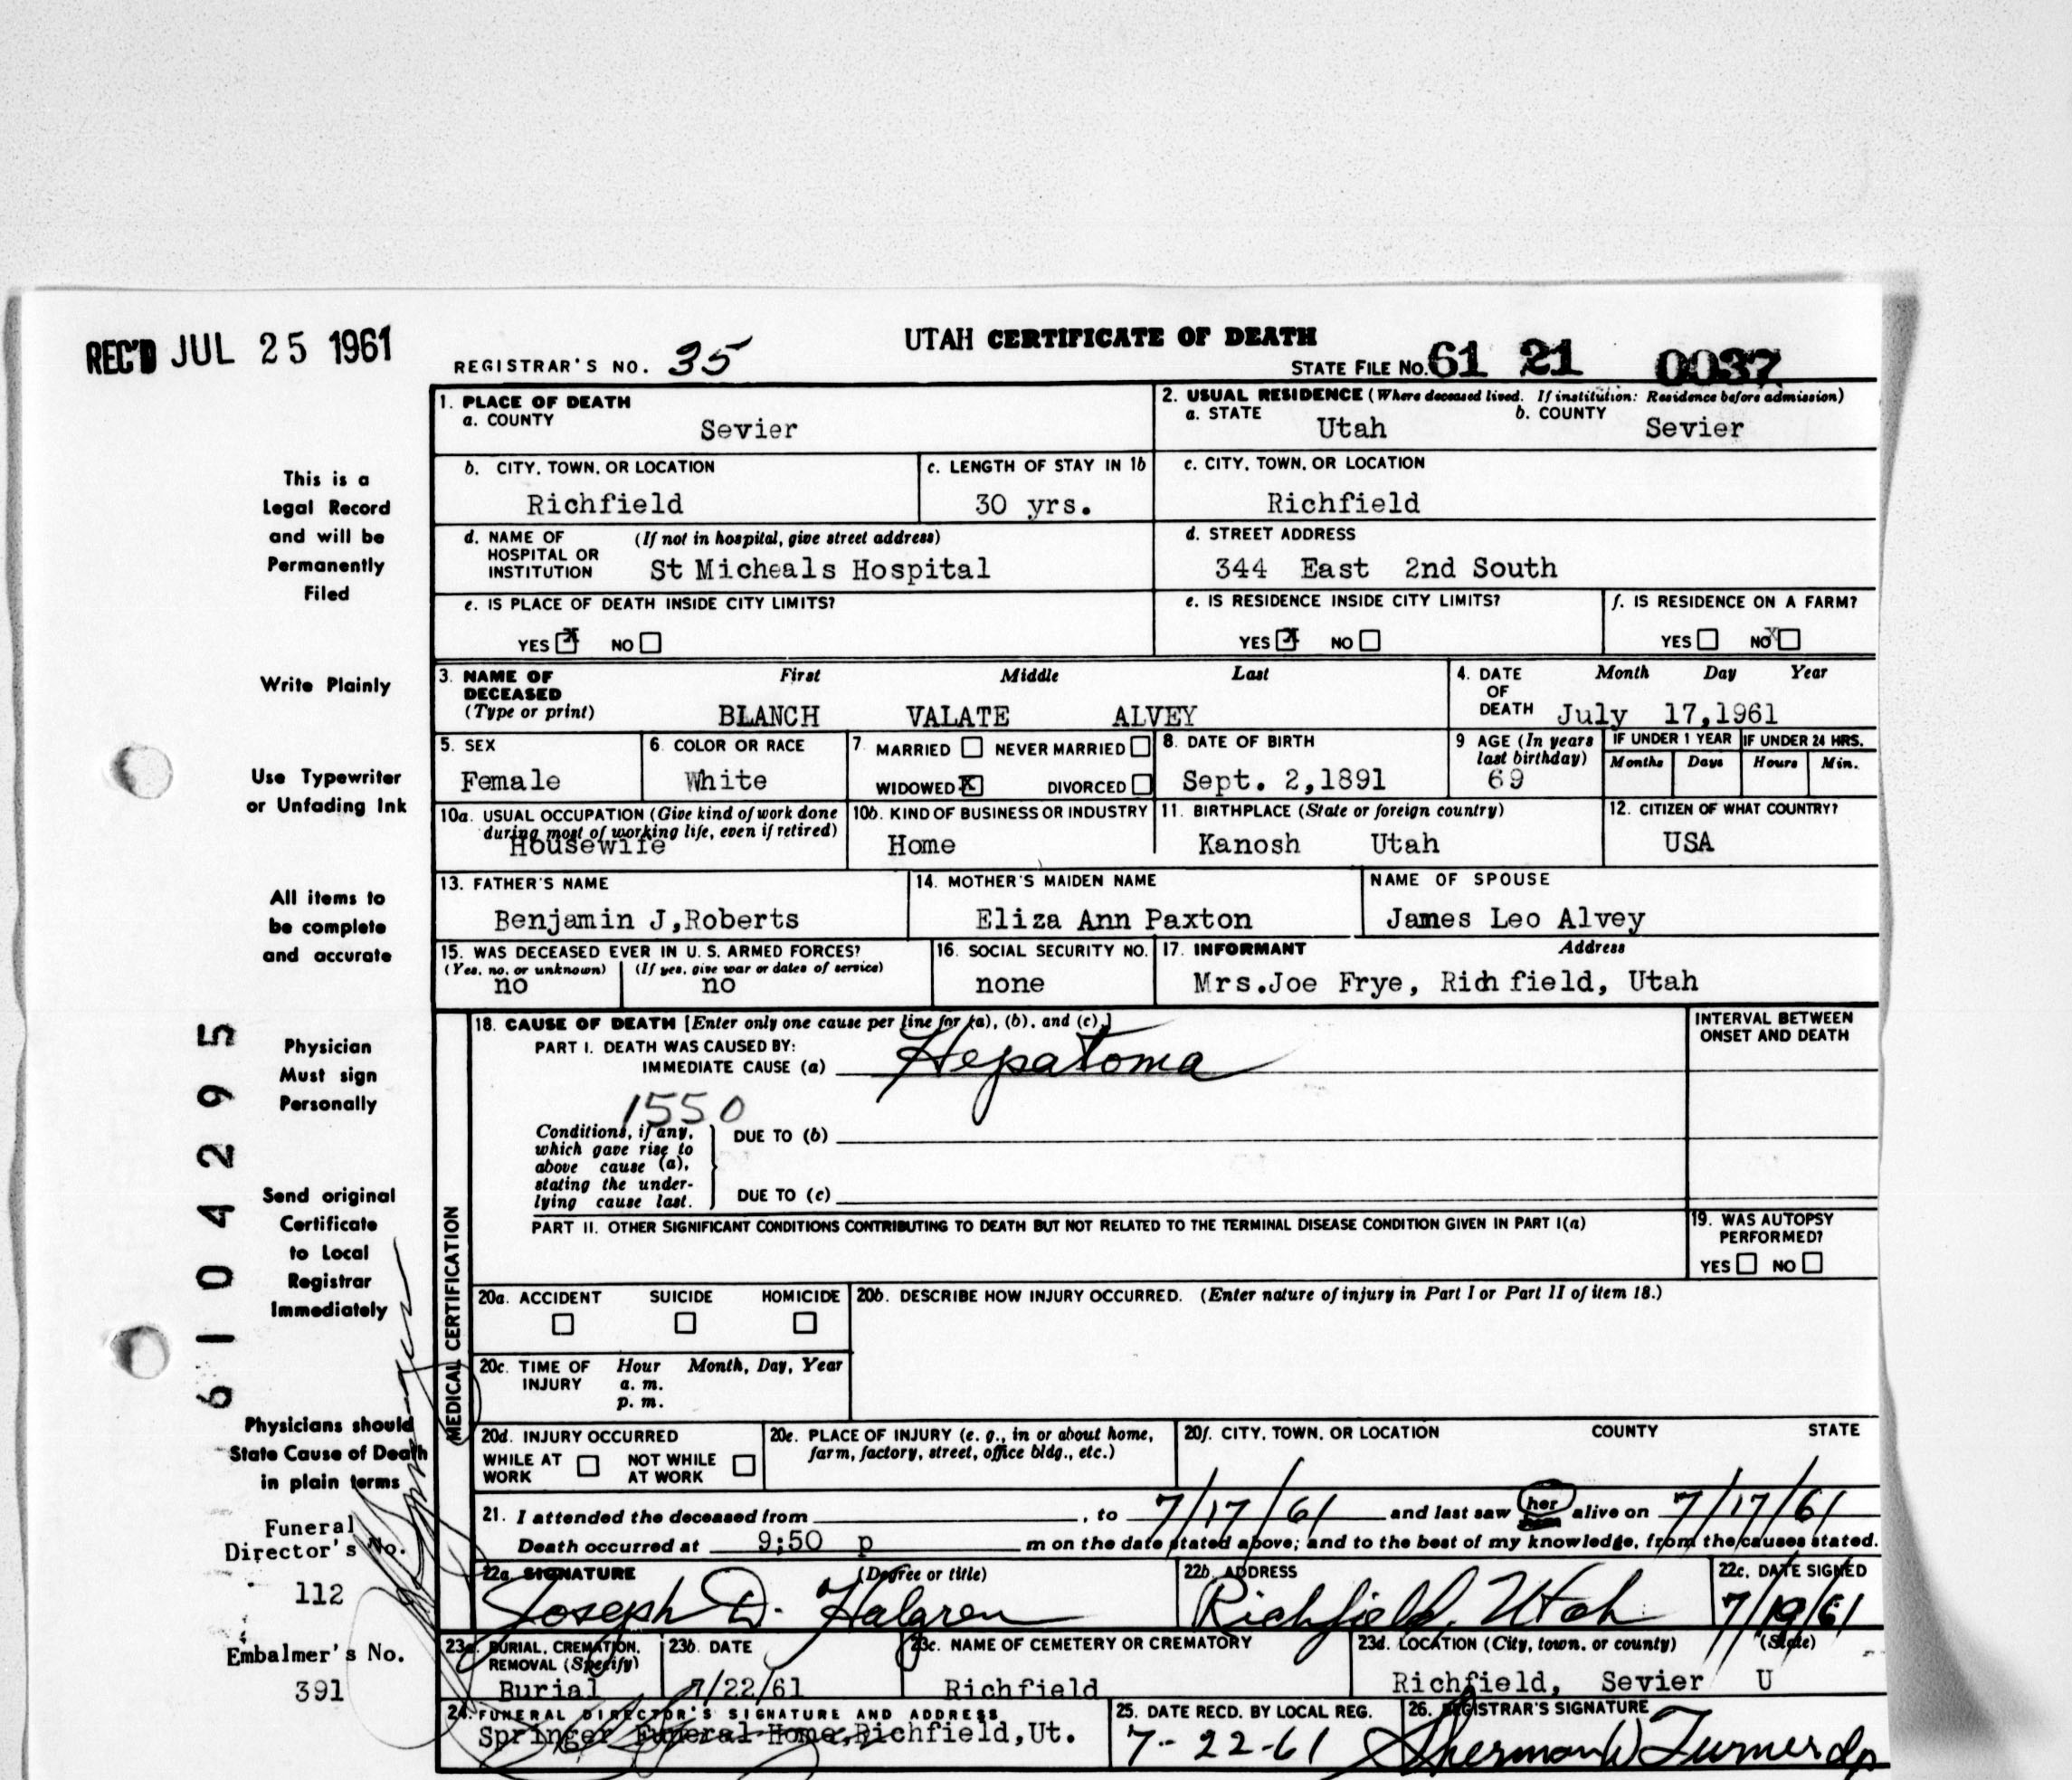 REC'D JUL 25 1961
UTAH CERTIFICATE OF DEATH
REGISTRAR'S NO. 35
STATE FILE NO. 61 21 0037
1. PLACE OF DEATH
a. COUNTY Sevier
2. USUAL RESIDENCE (Where deceased lived. If institution: Residence before admission)
a. STATE Utah b. COUNTY Sevier
b. CITY, TOWN, OR LOCATION Richfield
c. LENGTH OF STAY IN 1b 30 yrs.
c. CITY, TOWN, OR LOCATION Richfield
d. NAME OF HOSPITAL OR INSTITUTION (If not in hospital, give street address) St Micheals Hospital
d. STREET ADDRESS 344 East 2nd South
e. IS PLACE OF DEATH INSIDE CITY LIMITS? YES X NO
e. IS RESIDENCE INSIDE CITY LIMITS? YES X NO
f. IS RESIDENCE ON A FARM? YES NO X
3. NAME OF DECEASED (Type or print) First Middle Last
BLANCH VALATE ALVEY
4. DATE OF DEATH Month Day Year
July 17,1961
5. SEX Female
6. COLOR OR RACE White
7. MARRIED NEVER MARRIED
WIDOWED X DIVORCED
8. DATE OF BIRTH Sept. 2,1891
9 AGE (In years last birthday) 69
IF UNDER 1 YEAR Months Days
IF UNDER 24 HRS. Hours Min.
10a. USUAL OCCUPATION (Give kind of work done during most of working life, even if retired) Housewife
10b. KIND OF BUSINESS OR INDUSTRY Home
11. BIRTHPLACE (State or foreign country) Kanosh Utah
12. CITIZEN OF WHAT COUNTRY? USA
13. FATHER'S NAME Benjamin J,Roberts
14. MOTHER'S MAIDEN NAME Eliza Ann Paxton
NAME OF SPOUSE James Leo Alvey
15. WAS DECEASED EVER IN U. S. ARMED FORCES?
(Yes, no, or unknown) no (If yes, give war or dates of service) no
16. SOCIAL SECURITY NO. none
17. INFORMANT Address
Mrs.Joe Frye, Richfield, Utah
MEDICAL CERTIFICATION
18. CAUSE OF DEATH [Enter only one cause per line for (a), (b), and (c).]
PART I. DEATH WAS CAUSED BY:
IMMEDIATE CAUSE (a) Hepatoma
INTERVAL BETWEEN ONSET AND DEATH
1550
Conditions, if any, which gave rise to above cause (a), stating the underlying cause last.
DUE TO (b)
DUE TO (c)
PART II. OTHER SIGNIFICANT CONDITIONS CONTRIBUTING TO DEATH BUT NOT RELATED TO THE TERMINAL DISEASE CONDITION GIVEN IN PART I(a)
19. WAS AUTOPSY PERFORMED?
YES NO
20a. ACCIDENT SUICIDE HOMICIDE
20b. DESCRIBE HOW INJURY OCCURRED. (Enter nature of injury in Part I or Part II of item 18.)
20c. TIME OF INJURY Hour a. m. p. m. Month, Day, Year
20d. INJURY OCCURRED
WHILE AT WORK NOT WHILE AT WORK
20e. PLACE OF INJURY (e. g., in or about home, farm, factory, street, office bldg., etc.)
20f. CITY, TOWN, OR LOCATION COUNTY STATE
21. I attended the deceased from , to 7/17/61 and last saw her alive on 7/17/61
Death occurred at 9:50 p m on the date stated above; and to the best of my knowledge, from the causes stated.
22a. SIGNATURE (Degree or title)
Joseph D. Halgren
22b. ADDRESS
Richfield, Utah
22c. DATE SIGNED
7/19/61
23a. BURIAL, CREMATION, REMOVAL (Specify) Burial
23b. DATE 7/22/61
23c. NAME OF CEMETERY OR CREMATORY Richfield
23d. LOCATION (City, town, or county) (State)
Richfield, Sevier U
24. FUNERAL DIRECTOR'S SIGNATURE AND ADDRESS
Springer Funeral Home,Richfield,Ut.
25. DATE RECD. BY LOCAL REG.
7-22-61
26. REGISTRAR'S SIGNATURE
Sherman W Turner dp
This is a
Legal Record
and will be
Permanently
Filed
Write Plainly
Use Typewriter
or Unfading Ink
All items to
be complete
and accurate
Physician
Must sign
Personally
Send original
Certificate
to Local
Registrar
Immediately
Physicians should
State Cause of Death
in plain terms
Funeral
Director's No.
112
Embalmer's No.
391
6104295